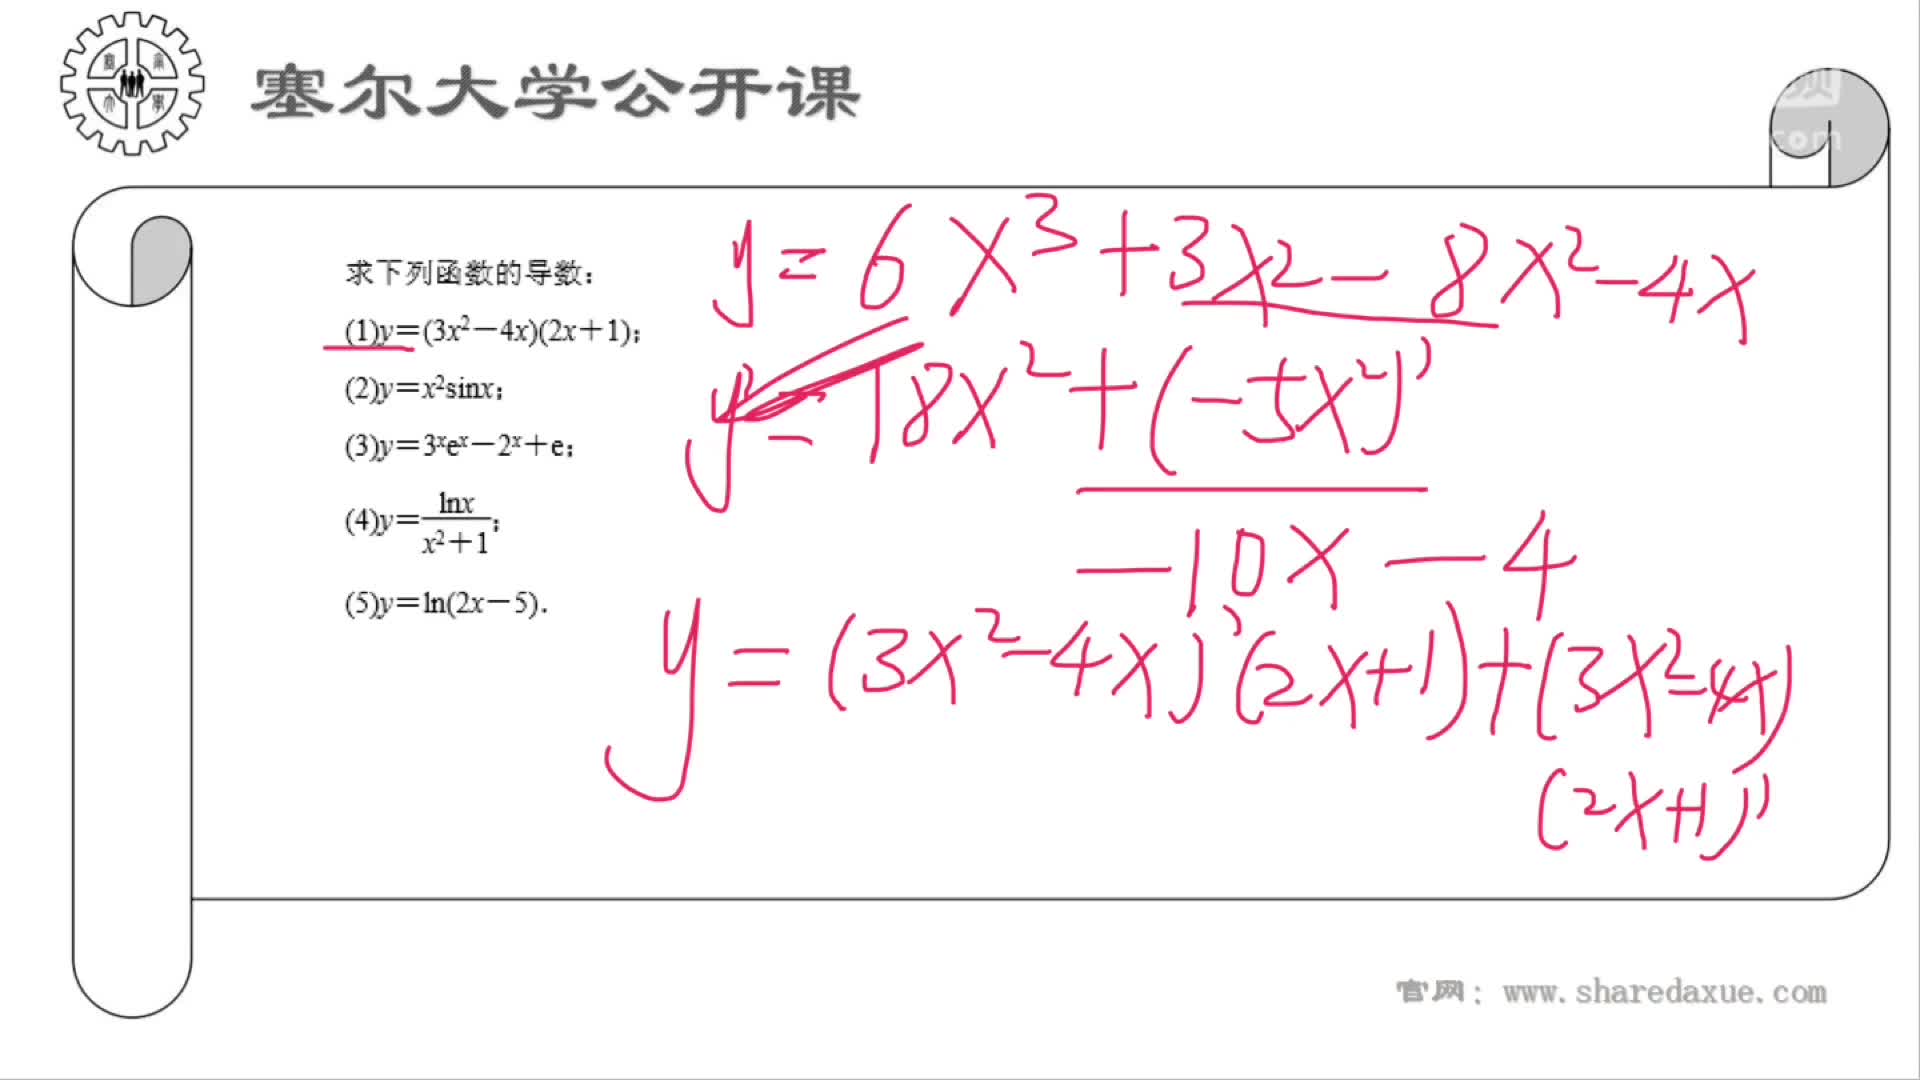 塞尔大学公开课
频
com
求下列函数的导数：
(1)y=(3x²-4x)(2x+1)；
(2)y=x²sinx；
(3)y=3ˣeˣ-2ˣ+e；
(4)y=lnx/x²+1；
(5)y=ln(2x-5).
y=6x³+3x²-8x²-4x
y'=18x²+(-5x²)'
-10x-4
y=(3x²-4x)'(2x+1)+(3x²-4x)
(2x+1)'
官网：www.sharedaxue.com